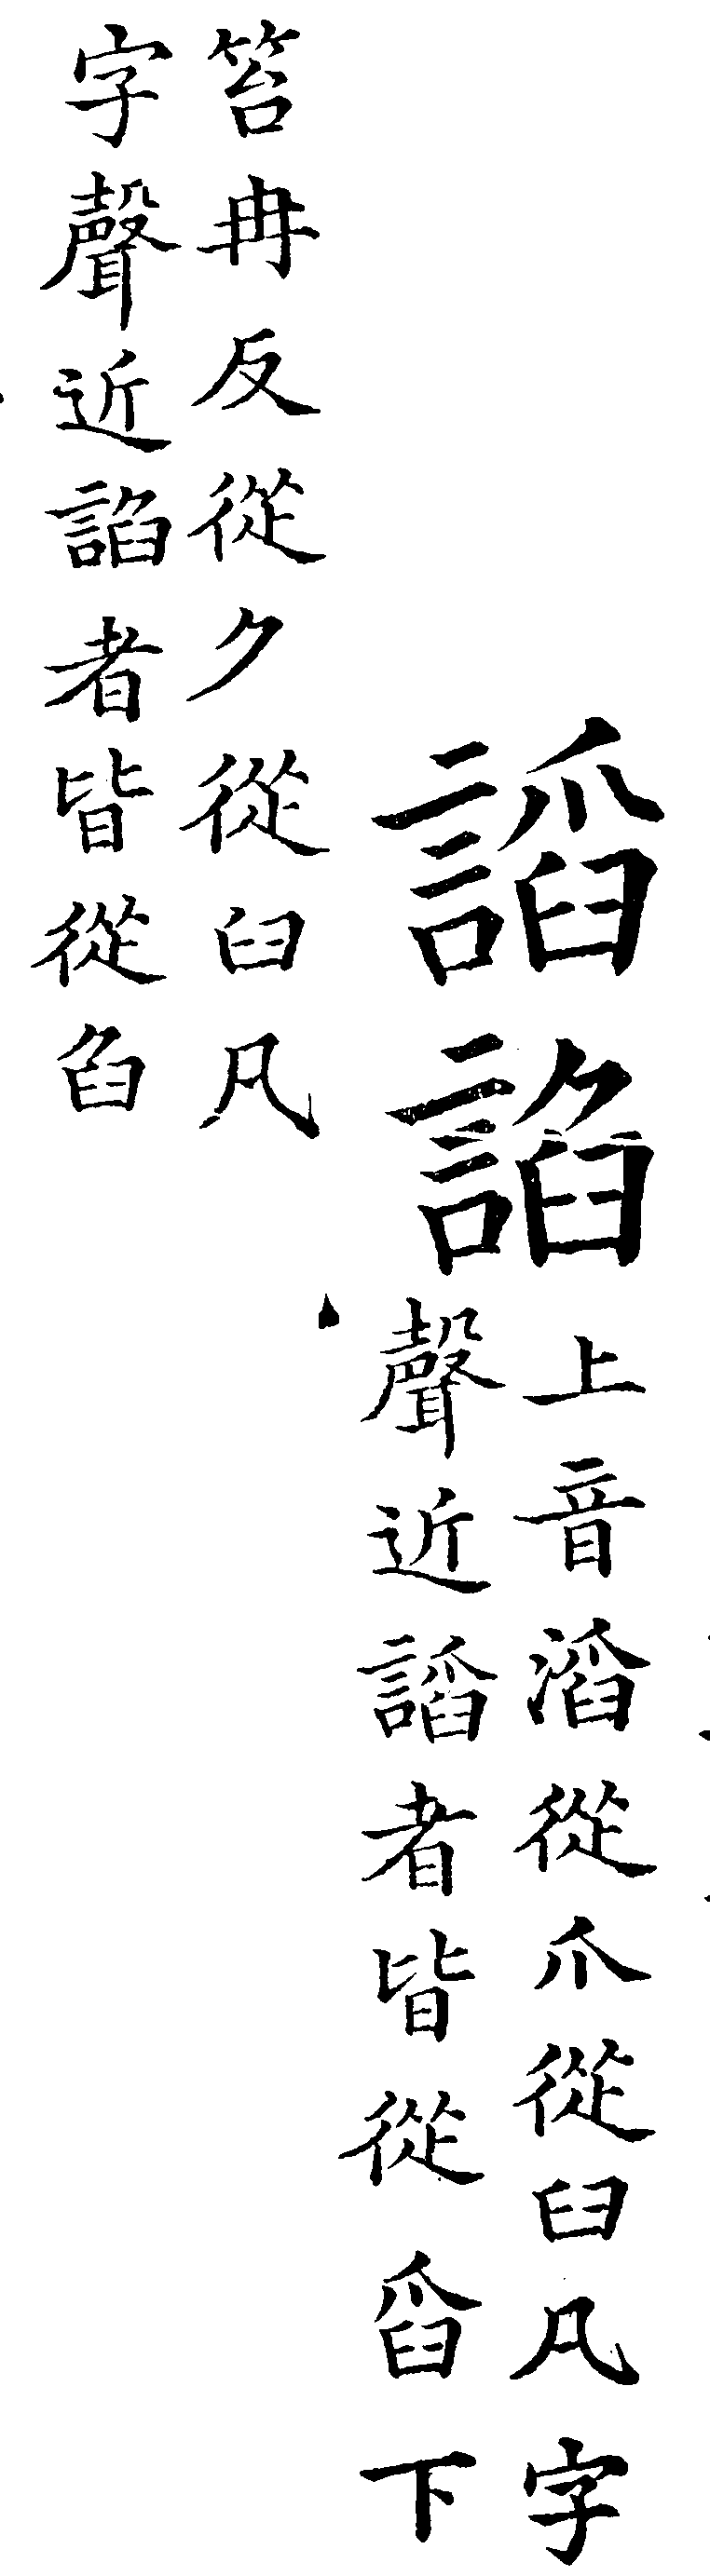 謟諂上音滔從爪從臼凡字
聲近謟者皆從舀下
笞冉反從𠂊從臼凡
字聲近諂者皆從臽